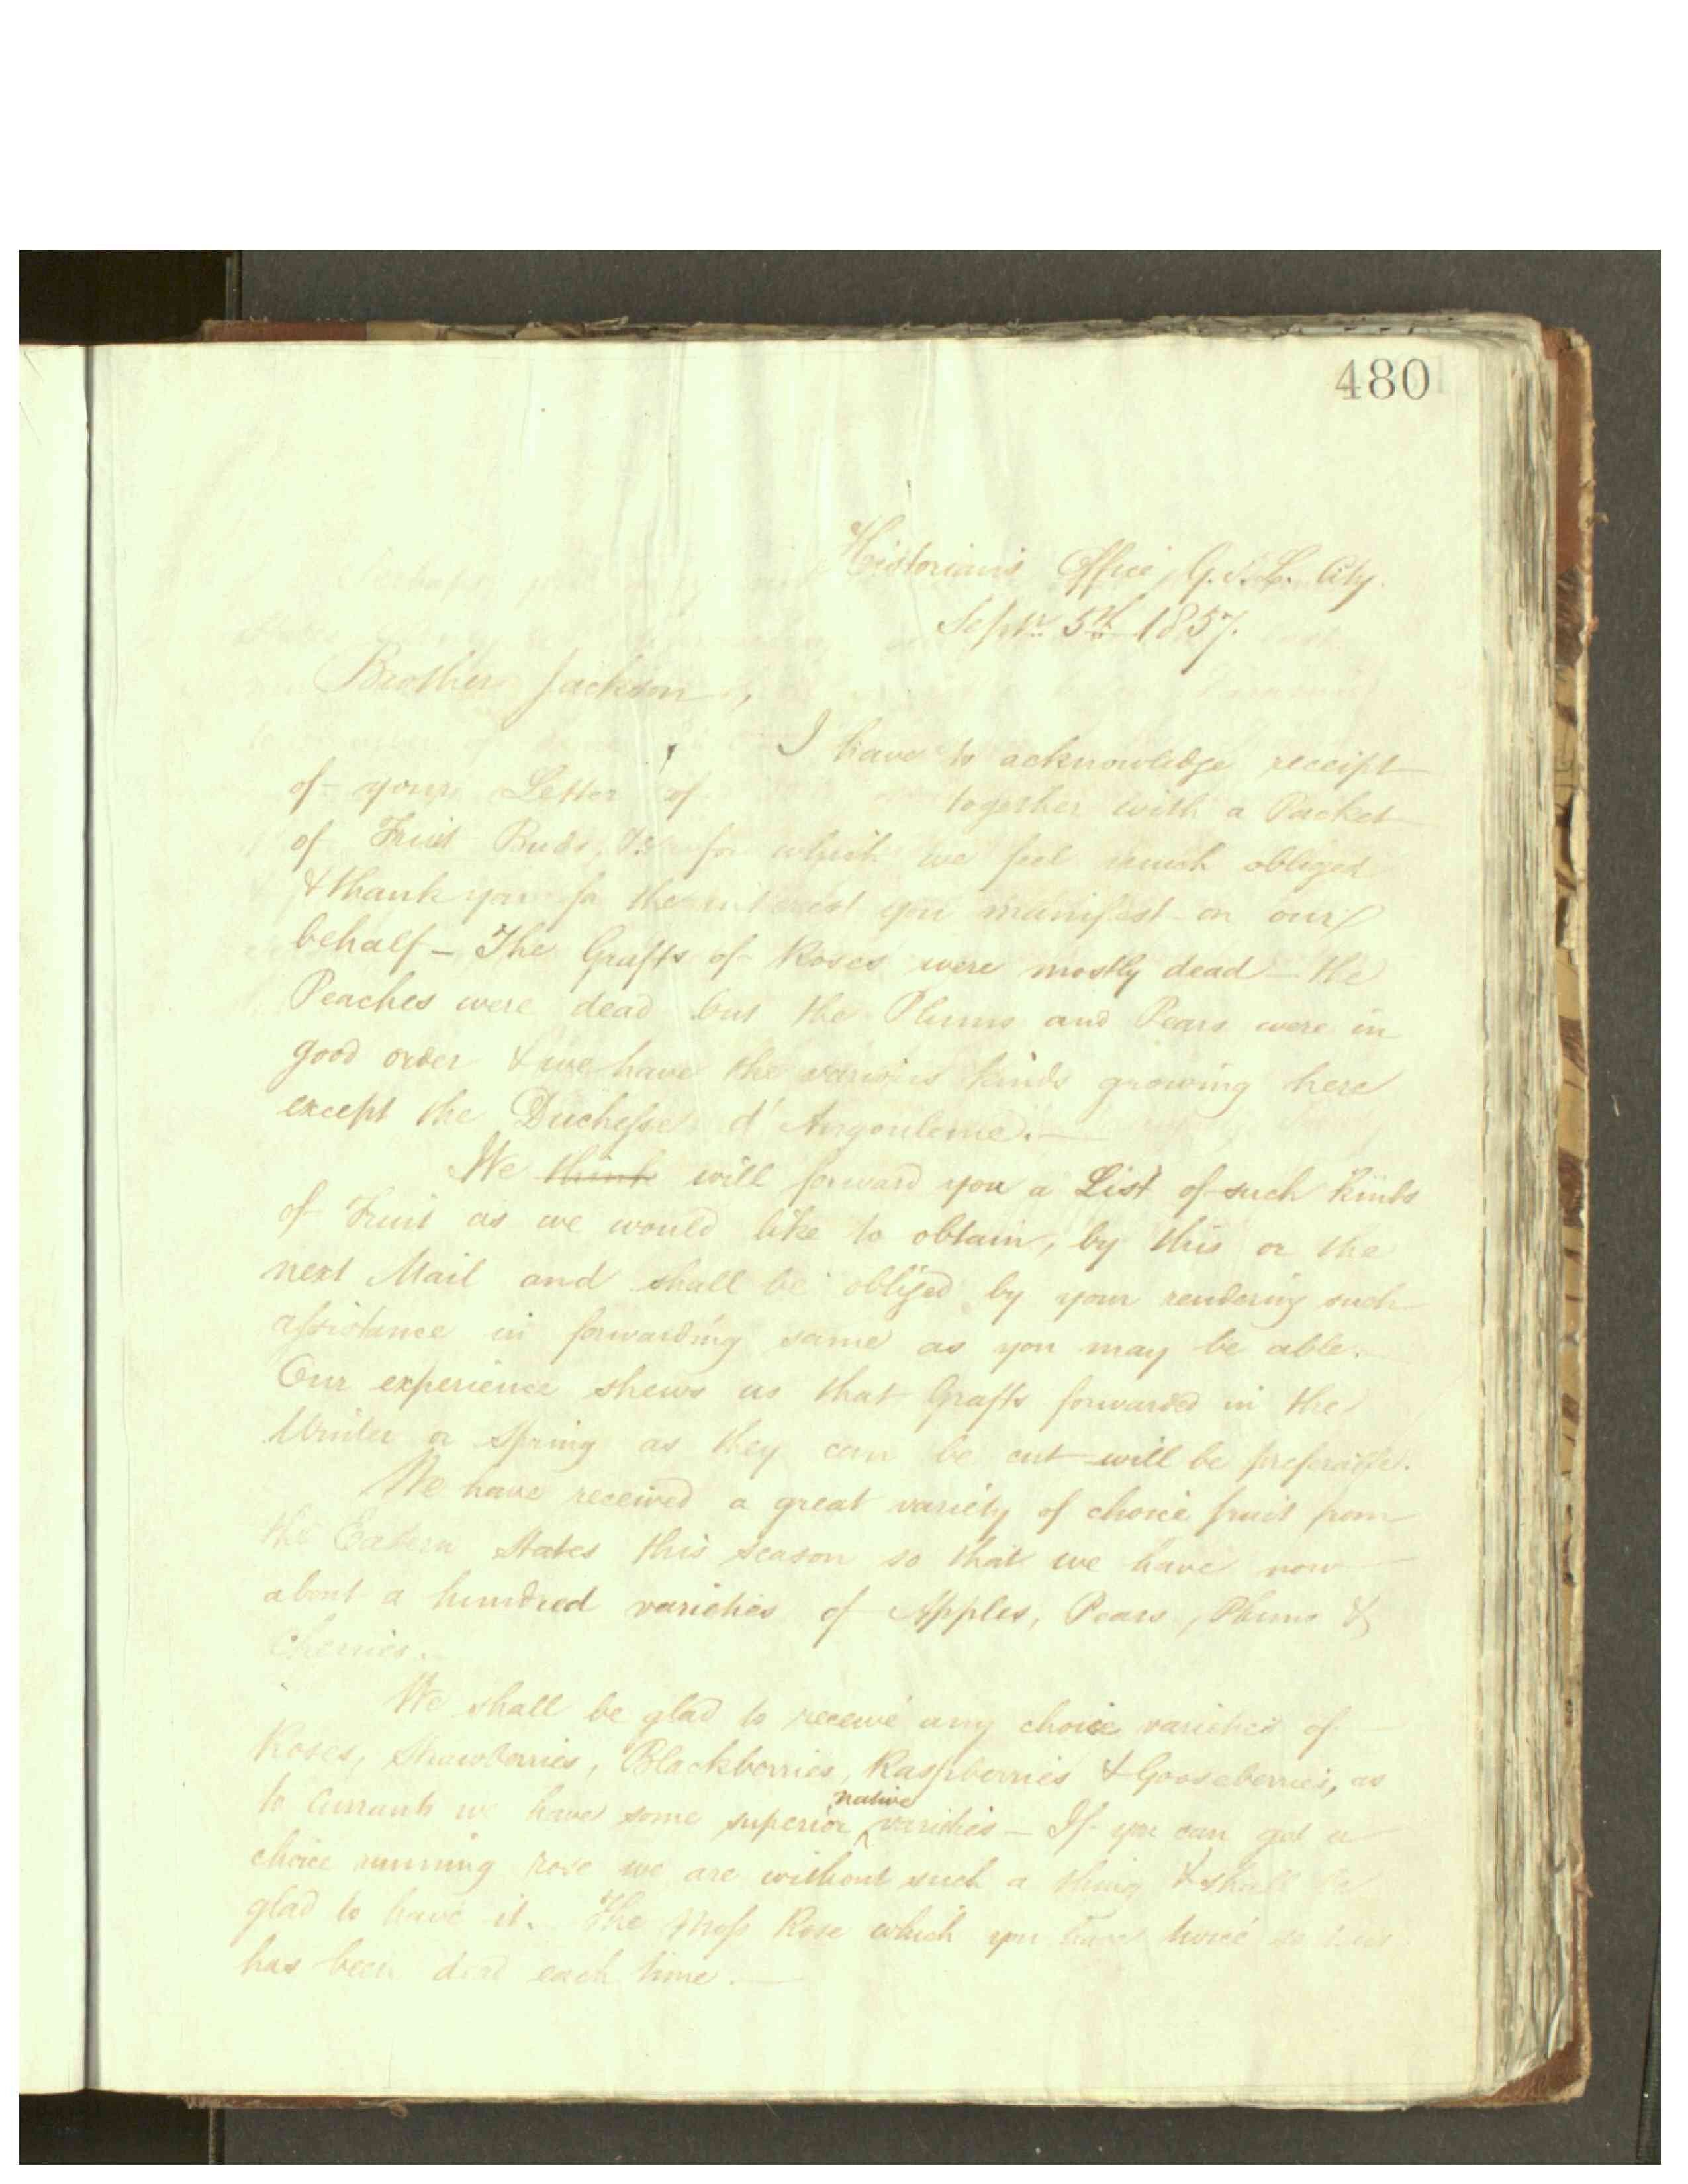 480
Historian's Office, G. S. L. City.
Septr. 5th 1857.
Brother Jackson,
I have to acknowledge receipt
of your Letter of together with a Packet
of Fruit Buds, &c for which we feel much obliged
& thank you for the interest you manifest on our
behalf – The Grafts of Roses were mostly dead – the
Peaches were dead but the Plums and Pears were in
good order & we have the various kinds growing here
except the Duchesse d'Angouleme. –
We think will forward you a List of such kinds
of Fruit as we would like to obtain, by this or the
next Mail and shall be obliged by your rendering such
assistance in forwarding same as you may be able. –
Our experience shews us that Grafts forwarded in the
Winter or Spring as they can be cut will be preferable.
We have received a great variety of choice fruit from
the Eastern States this season so that we have now
about a hundred varieties of Apples, Pears, Plums &
Cherries. –
We shall be glad to receive any choice varieties of
Roses, Strawberries, Blackberries, Raspberries & Gooseberries, as
to Currants we have some superior native varieties – If you can get a
choice running rose we are without such a thing & shall be
glad to have it. The Moss Rose which you twice
has been dead each time. –